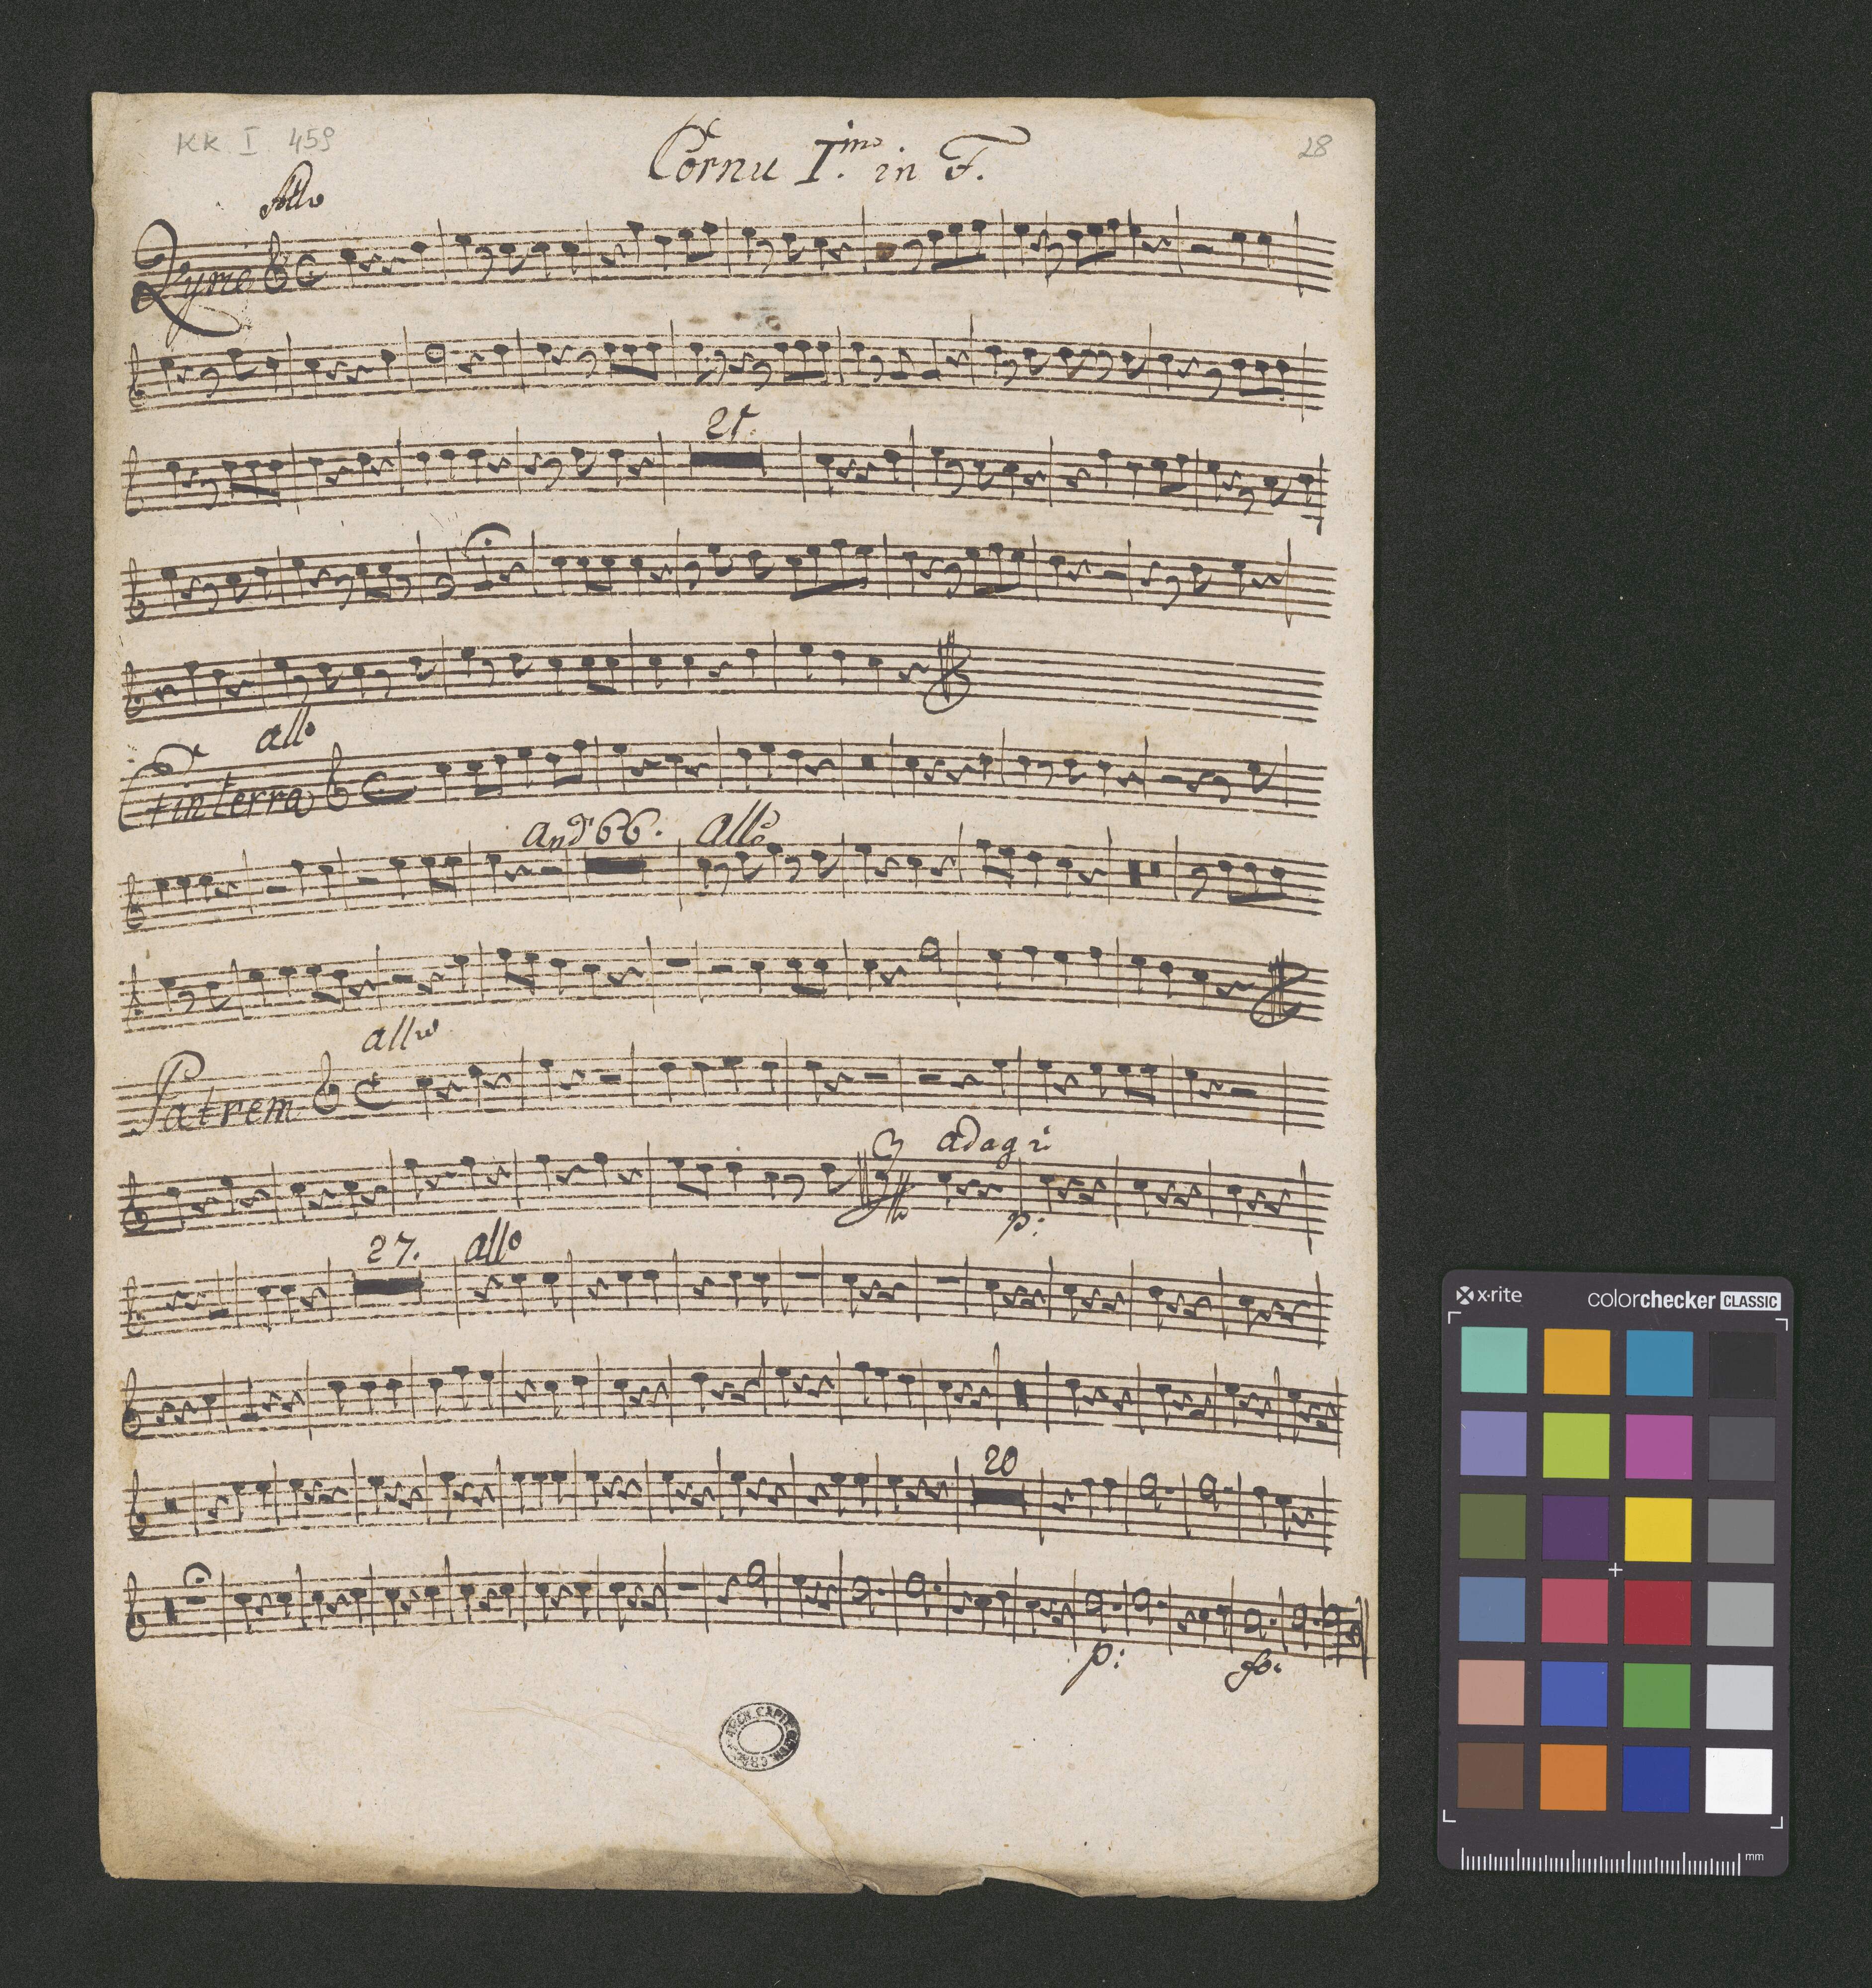 KK. I. 459
28
Cornu I.mo in F.
Allo
Kyrie
21.
allo
Et in terra
and. 66. allo
allo
Patrem
adag
p:
27. allo
20
p: fo:
x·rite
colorchecker CLASSIC
mm